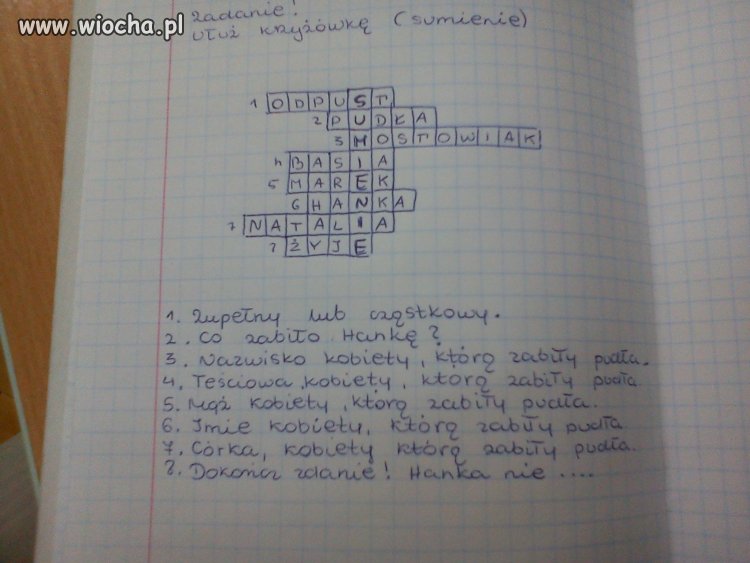 www.wiocha.pl
Zadanie!
Ułuż krzyżówkę (sumienie)
1 ODPUST
2 PUDŁA
3 MOSTOWIAK
4 BASIA
5 MAREK
6 HANKA
7 NATALIA
8 ŻYJE
1. Zupełny lub cząstkowy.
2. Co zabiło Hankę?
3. Nazwisko kobiety, którą zabiły pudła.
4. Teściowa kobiety, którą zabiły pudła.
5. Mąż kobiety, którą zabiły pudła.
6. Imie kobiety, którą zabiły pudła.
7. Córka, kobiety którą zabiły pudła.
8. Dokończ zdanie! Hanka nie ....